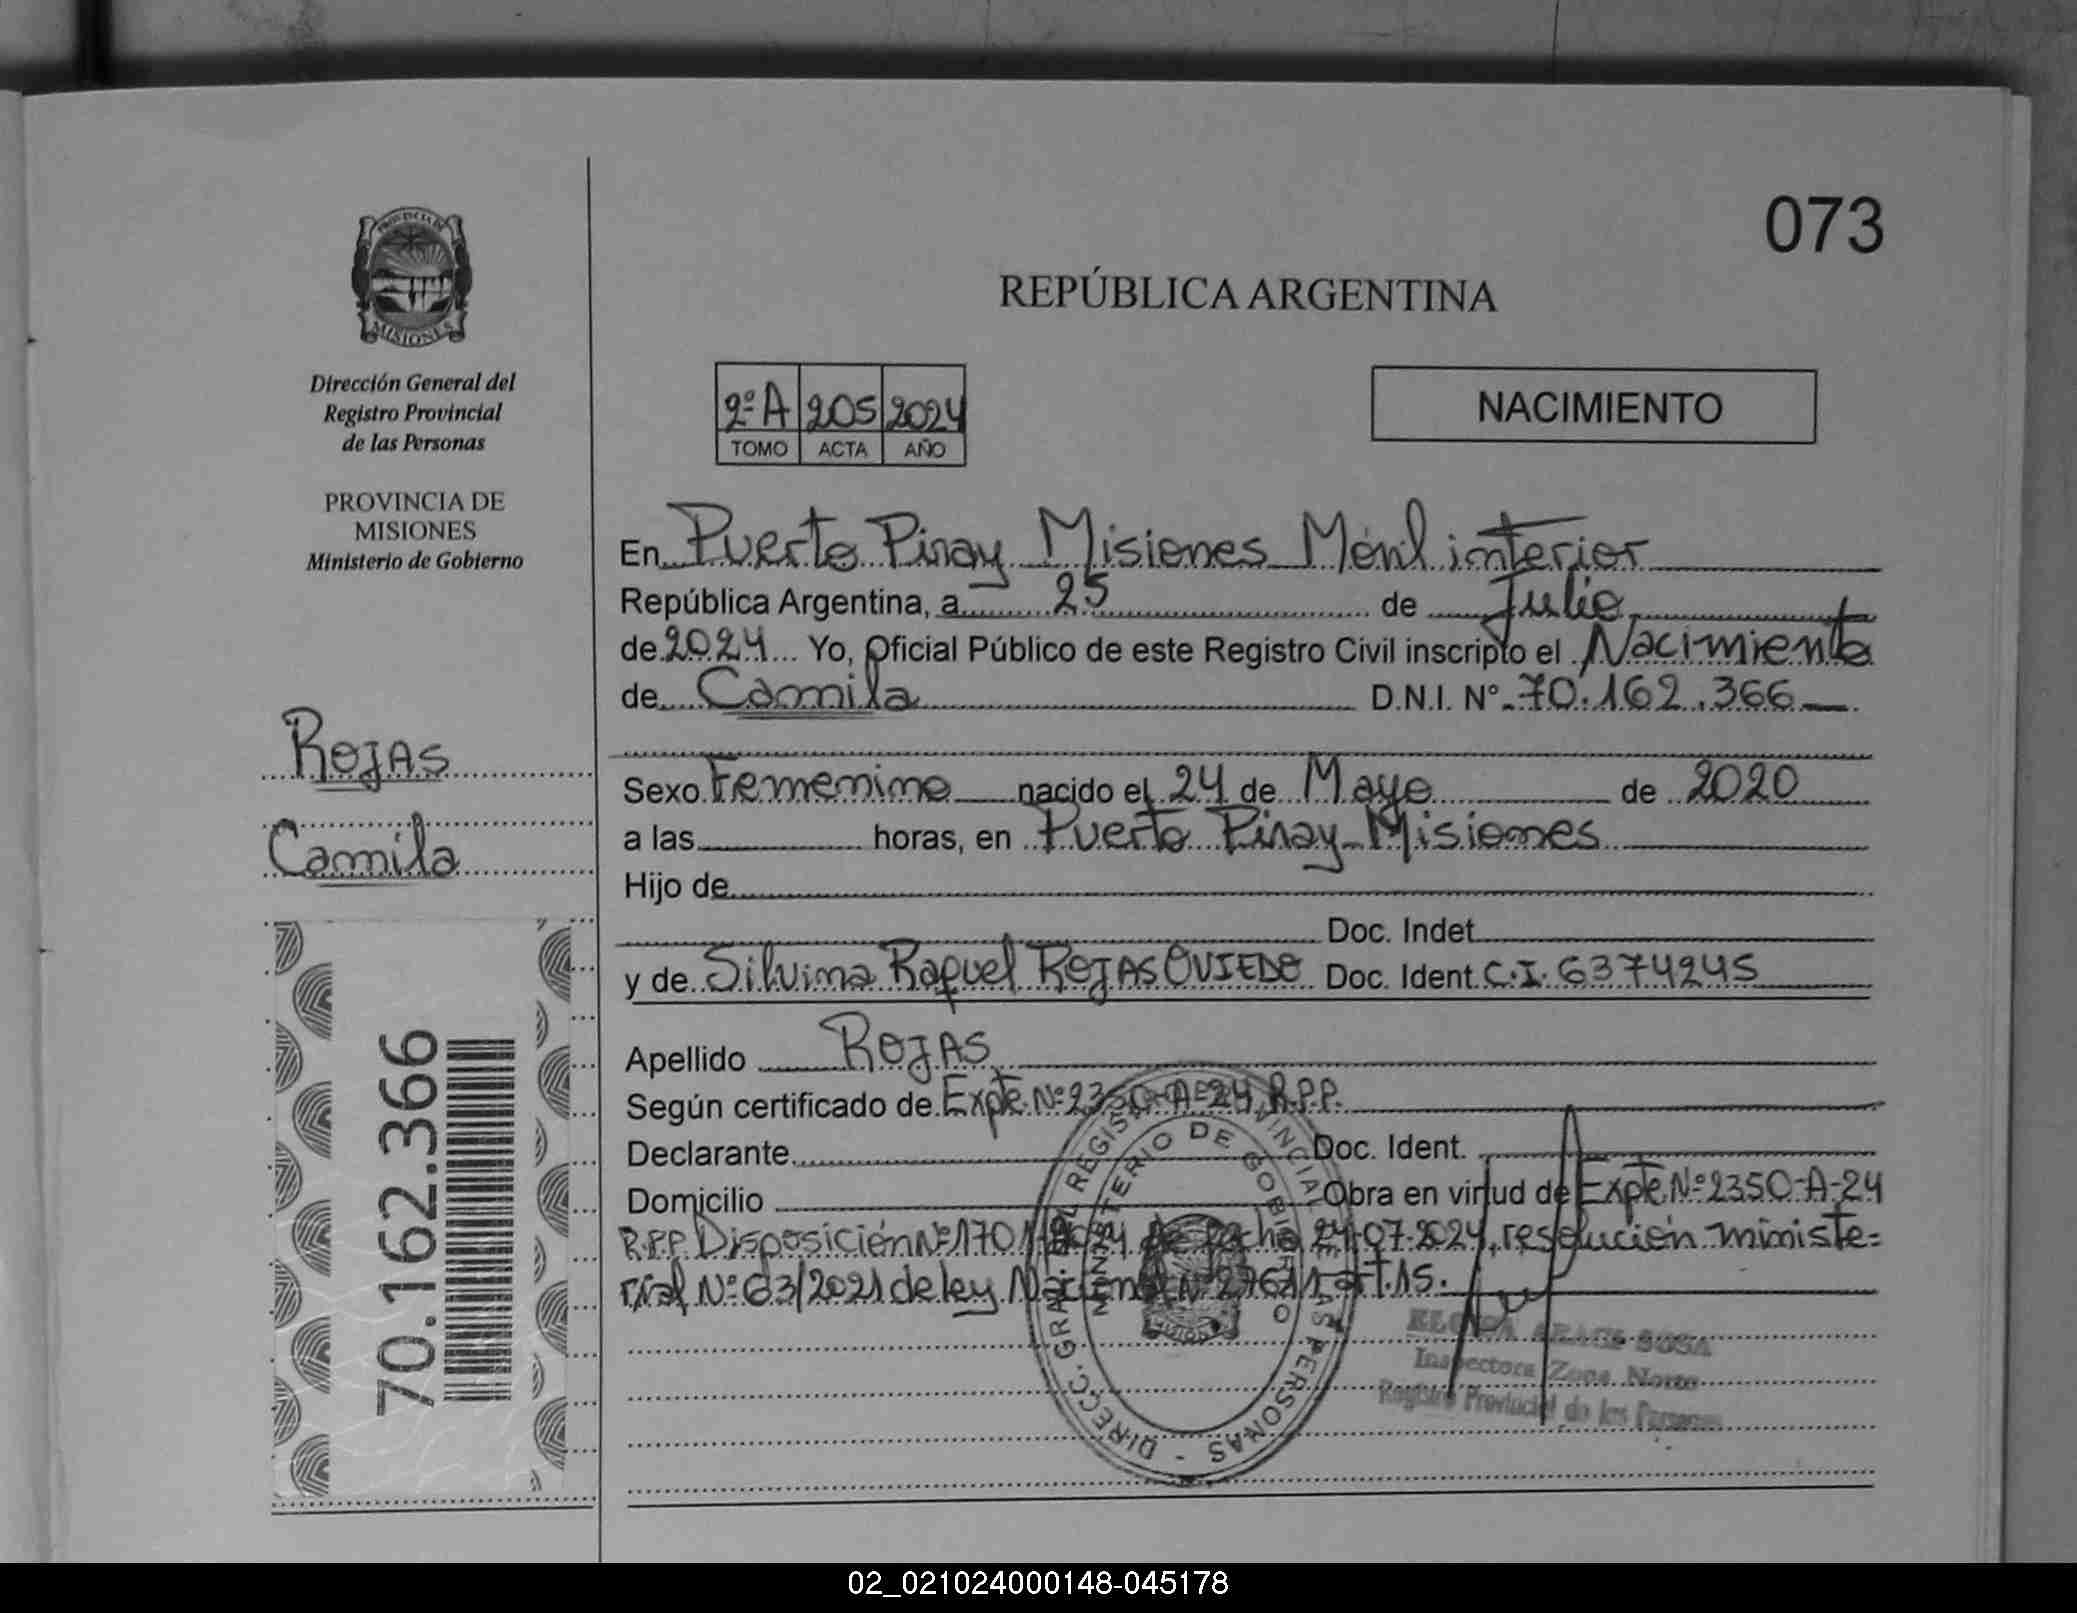 073
PROVINCIA DE
MISIONES
Dirección General del
Registro Provincial
de las Personas
PROVINCIA DE
MISIONES
Ministerio de Gobierno
REPÚBLICA ARGENTINA
2º A 205 2024
TOMO ACTA AÑO
NACIMIENTO
En Puerto Piray Misiones Móvil interior
República Argentina, a 25 de Julio
de 2024 Yo, Oficial Público de este Registro Civil inscripto el Nacimiento
de Camila D.N.I. Nº 70.162.366
ROJAS
Camila
Sexo Femenino nacido el 24 de Mayo de 2020
a las horas, en Puerto Piray-Misiones
Hijo de
Doc. Indet
y de Silvina Raquel ROJAS OVIEDO Doc. Ident. C.I. 6374245
Apellido ROJAS
Según certificado de Expte. Nº 2350-A-24 R.P.P.
Declarante Doc. Ident.
Domicilio Obra en virtud de Expte Nº 2350-A-24
R.P.P. Disposición Nº 1701 de fecha 24-07-2024, resolución ministe=
rial Nº 63/2021 de ley Nacional Nº 27611 art. 15.
70.162.366
DIREC. GRAL. DEL REGISTRO PROVINCIAL DE LAS PERSONAS -
MINISTERIO DE GOBIERNO
SOSA
Inspectora Zona Norte
Registro Provincial de las Personas
02_021024000148-045178